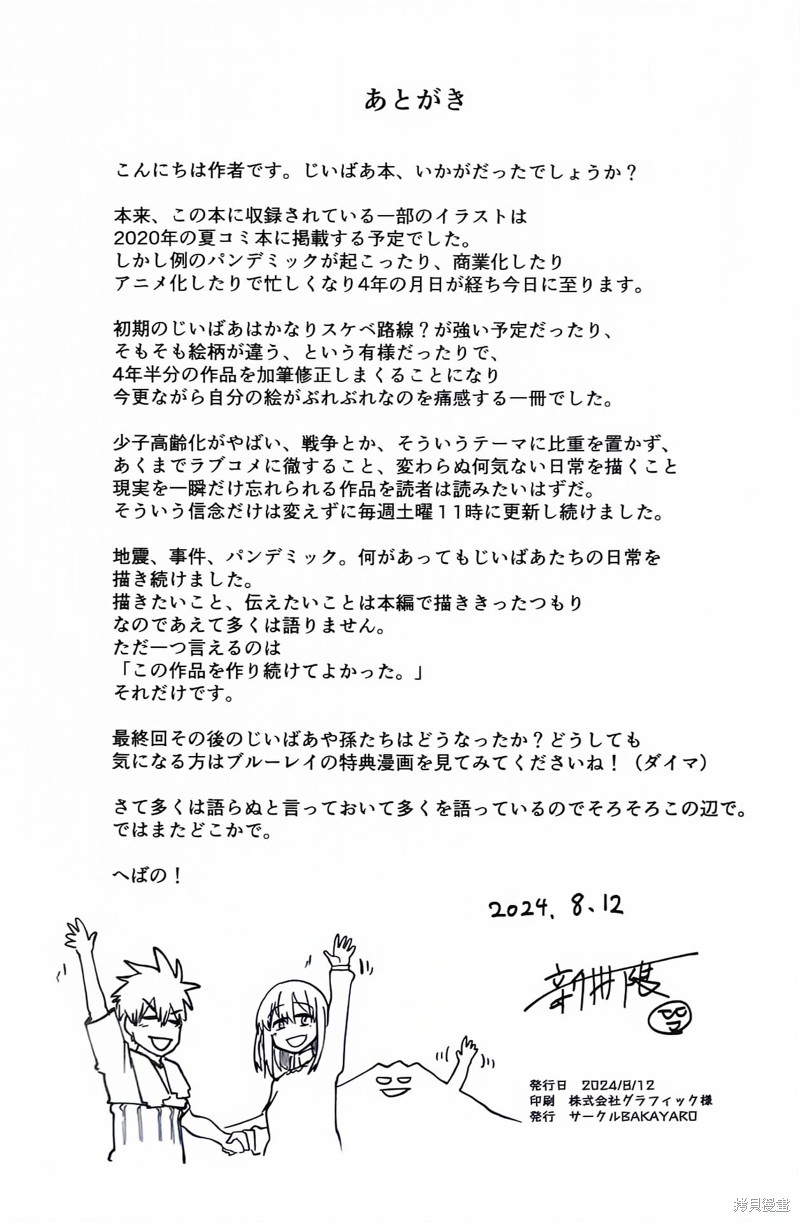 あとがき
こんにちは作者です。じいばあ本、いかがだったでしょうか？
本来、この本に収録されている一部のイラストは
2020年の夏コミ本に掲載する予定でした。
しかし例のパンデミックが起こったり、商業化したり
アニメ化したりで忙しくなり4年の月日が経ち今日に至ります。
初期のじいばあはかなりスケベ路線？が強い予定だったり、
そもそも絵柄が違う、という有様だったりで、
4年半分の作品を加筆修正しまくることになり
今更ながら自分の絵がぶれぶれなのを痛感する一冊でした。
少子高齢化がやばい、戦争とか、そういうテーマに比重を置かず、
あくまでラブコメに徹すること、変わらぬ何気ない日常を描くこと
現実を一瞬だけ忘れられる作品を読者は読みたいはずだ。
そういう信念だけは変えずに毎週土曜１１時に更新し続けました。
地震、事件、パンデミック。何があってもじいばあたちの日常を
描き続けました。
描きたいこと、伝えたいことは本編で描ききったつもり
なのであえて多くは語りません。
ただ一つ言えるのは
「この作品を作り続けてよかった。」
それだけです。
最終回その後のじいばあや孫たちはどうなったか？どうしても
気になる方はブルーレイの特典漫画を見てみてくださいね！（ダイマ）
さて多くは語らぬと言っておいて多くを語っているのでそろそろこの辺で。
ではまたどこかで。
へばの！
2024. 8. 12
新井隈
発行日 2024/8/12
印刷 株式会社グラフィック様
発行 サークルBAKAYARO
拷貝漫畫